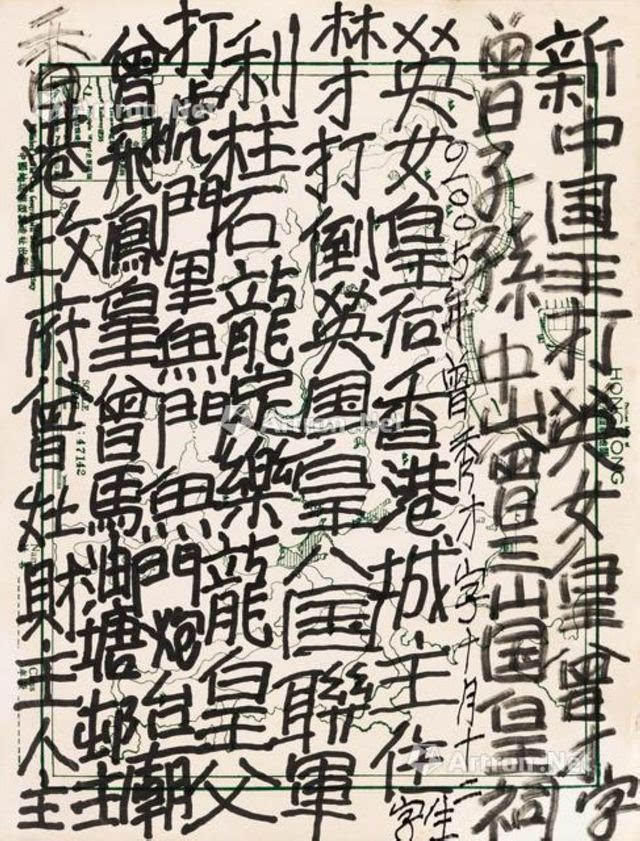 新中国王打英女皇曾 字
曾子孫中山曾三山国皇祠
2005年曾秀才字十月十二
英女皇后香港城主作
林才打倒英国皇八国聯軍
利柱石龍 樂龍皇父
打號門里魚門魚門炮台廟
曾飛鳳皇曾馬油塘邨主
香港政府曾灶財主人主
HONG KONG
SCALE 1:47142
Artron.Net